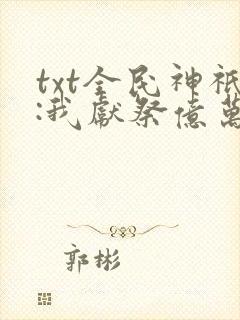 txt全民神祇
:我獻祭億萬
郭彬